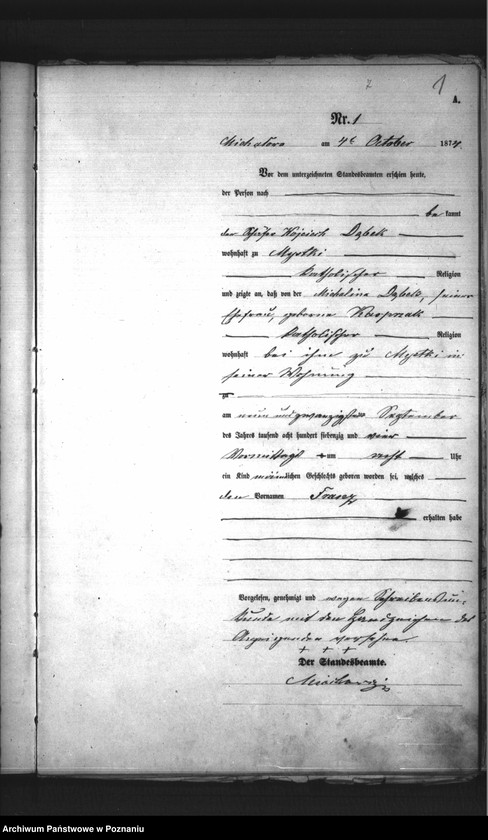 1
A.
Nr. 1
am 4t October 1874.
Vor dem unterzeichneten Standesbeamten erschien heute,
der Person nach
be kannt
der Schäfer Wojciech Dąbek
wohnhaft zu Mystki
katholischer Religion
und zeigte an, daß von der Michalina Dąbek, seiner
Ehefrau, geborne Kasprzak
katholischer Religion
wohnhaft bei ihm zu Mystki in
seiner Wohnung
zu
am neun und zwanzigsten September
des Jahres tausend acht hundert siebenzig und vier
Vormittags um acht Uhr
ein Kind männlichen Geschlechts geboren worden sei, welches
den Vornamen
erhalten habe
Vorgelesen, genehmigt und wegen Schreibensun-
kunde mit dem Handzeichen des
Anzeigenden versehen.
+ + +
Der Standesbeamte.
Archiwum Państwowe w Poznaniu